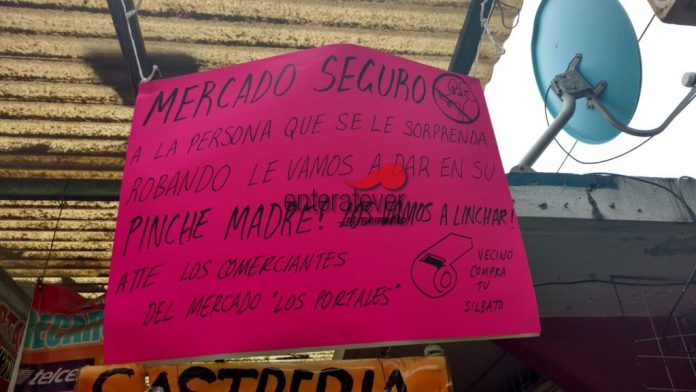 MERCADO SEGURO
A LA PERSONA QUE SE LE SORPRENDA
ROBANDO LE VAMOS A DAR EN SU
PINCHE MADRE! LOS VAMOS A LINCHAR!
ATTE. LOS COMERCIANTES
DEL MERCADO "LOS PORTALES"
VECINO
COMPRA
TU
SILBATO
enteratever
telcel
SASTRERIA